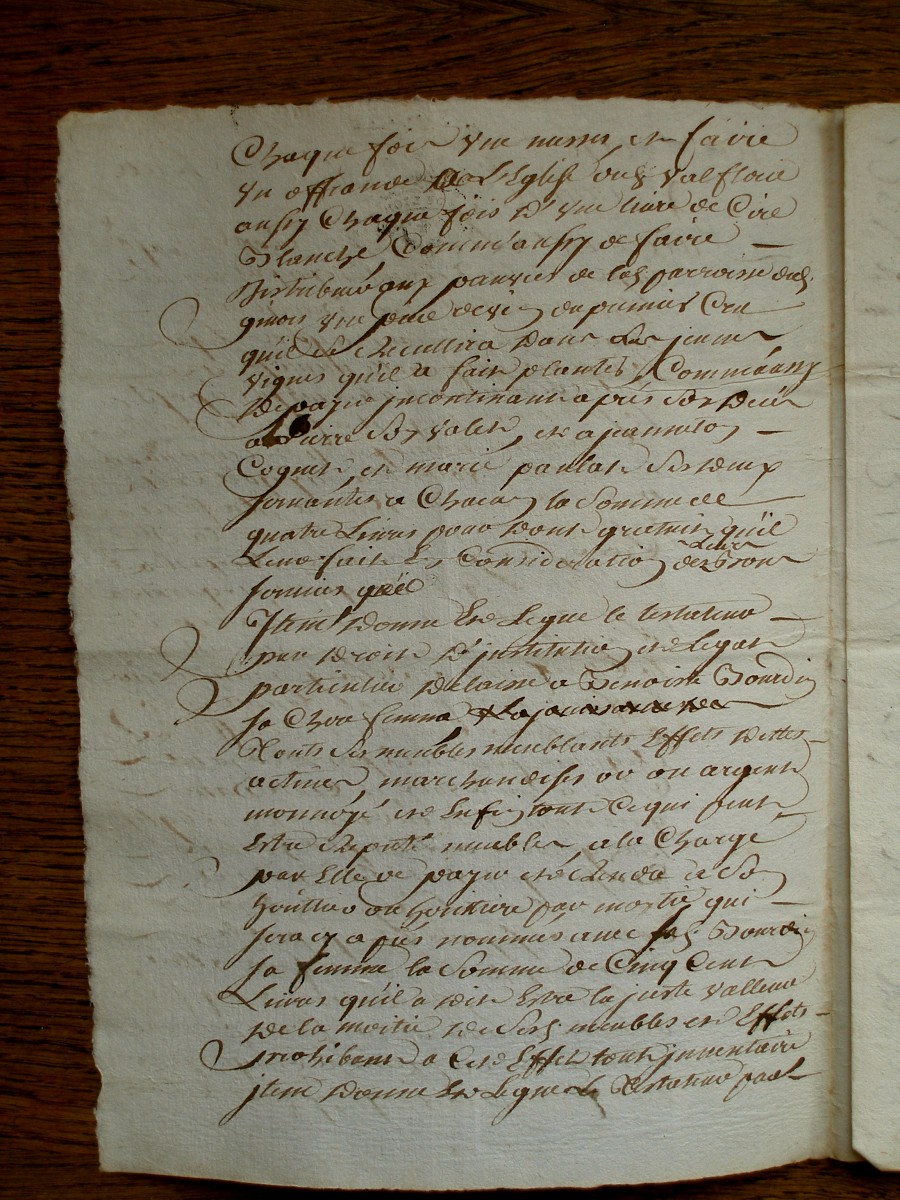 Chaque fois une messe, et faire
un offrande a l'Eglise dud Valfleury
aussy Chaque fois d'une livre de Cire
Blanche, Comm'aussy de faire
Distribué aux pauvres de lad parroisse dud
une de vin du premier Cru
qu'il se Recullira dans les jeunes
vignes qu'il a fait plantés, Comm'aussy
De payer jncontinant après son Décès
a Pierre son valet, et a jeanneton
et marie ses deux
servantes a Chacun la Somme de
quatre Livres pour Dont gratuit qu'il
Leur fait En Consideration de Leurs Bons
services
Item Donne Et Legue le testateur
par Droit D'jnstitution et Legat
particulier Delaisse a Benoiste Bourdin
sa Chere femme
Touts ses meubles meublants Effets Dettes
actives, marchandises ou en argent
monnoyé et Enfin tout Ce qui peut
Estre Reputé meubles, a la Charge
par Elle de payer et Rendre a Son
heritier ou heritiere par moitié qui
sera cy après nommés avec lad Bourdin
sa femme la Somme de Cinq Cent
Livres qu'il a dit Estre la juste valleur
De la moitié de Sesd meubles et Effets
prohibant a Cet Effet tout jnventaire
jtem Donne Et Legue Le Testateur par